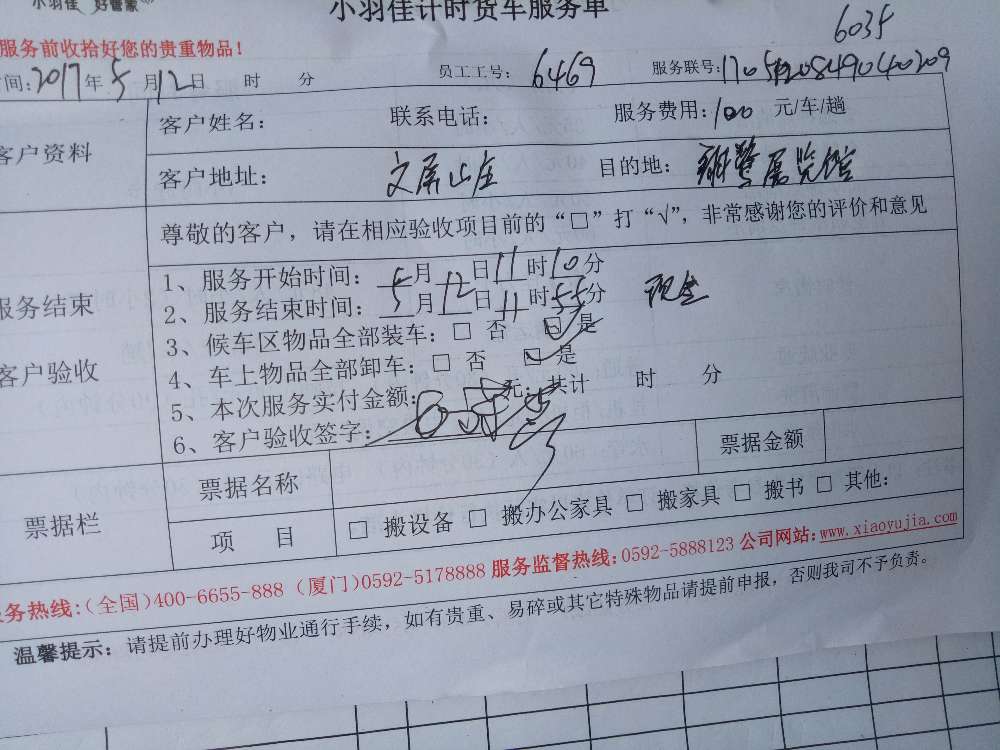 小羽佳 好管家
小羽佳计时货车服务单
6035
服务前收拾好您的贵重物品！
时间:2017年5月12日 时 分 员工工号: 6469 服务联号:
客户资料
客户姓名: 联系电话: 服务费用:100 元/车/趟
客户地址: 文屏山庄 目的地: 展览馆
服务结束
客户验收
尊敬的客户，请在相应验收项目前的“□”打“√”，非常感谢您的评价和意见
1、服务开始时间: 5月12日11时10分
2、服务结束时间: 5月12日11时55分 现金
3、候车区物品全部装车: □ 否 ☑ 是
4、车上物品全部卸车: □ 否 ☑ 是
5、本次服务实付金额: 元;共计 时 分
6、客户验收签字:
票据栏
票据名称 票据金额
项 目 □ 搬设备 □ 搬办公家具 □ 搬家具 □ 搬书 □ 其他:
服务热线:(全国)400-6655-888 (厦门)0592-5178888 服务监督热线:0592-5888123 公司网站:www.xiaoyujia.com
温馨提示: 请提前办理好物业通行手续，如有贵重、易碎或其它特殊物品请提前申报，否则我司不予负责。